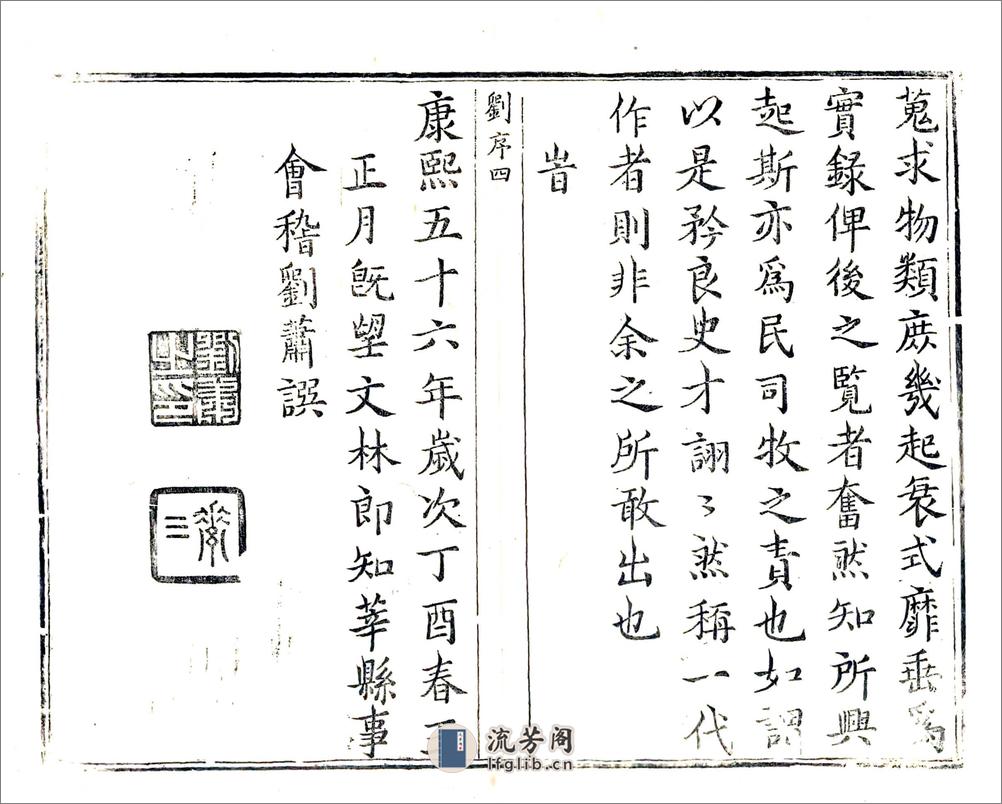 蒐求物類庶幾起衰式靡垂為
實録俾後之覧者奮然知所興
起斯亦為民司牧之責也如謂
以是矜良史才詡〻然稱一代
作者則非余之所敢出也
旹
劉序四
康熙五十六年歲次丁酉春王
正月旣望文林郎知莘縣事
會稽劉蕭譔
流芳阁
lfglib.cn